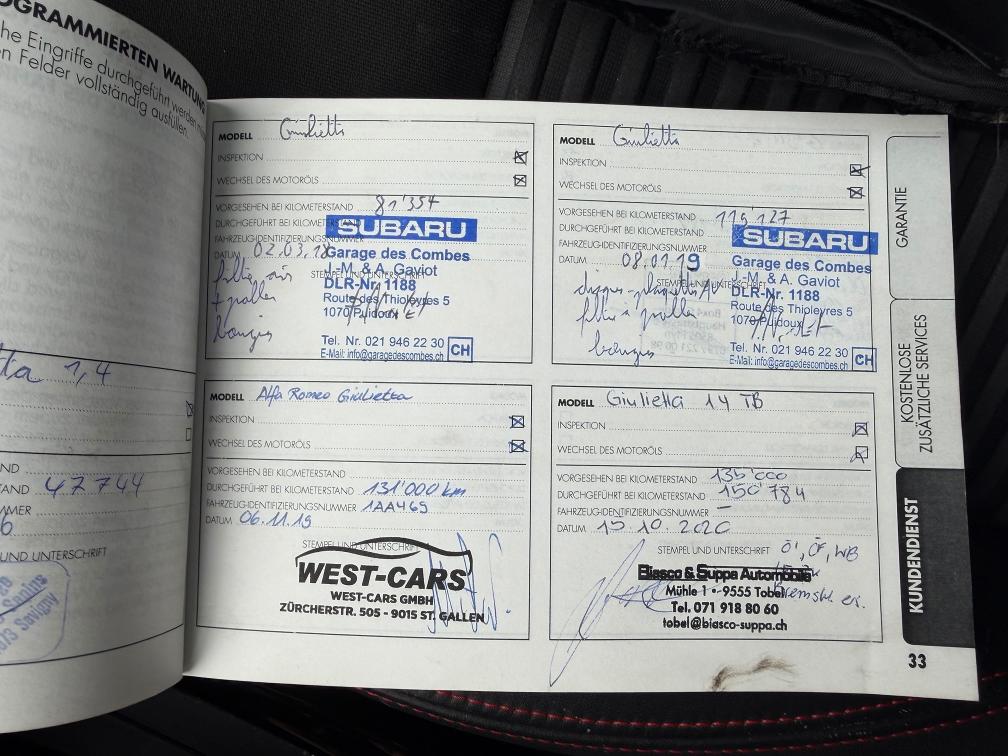 OGRAMMIERTEN WARTUNG
he Eingriffe durchgeführt werden
n Feldern vollständig ausfüllen.
ta 1,4
ND
TAND 47744
MMER
6
UND UNTERSCHRIFT
Savigny
MODELL Giulietta
INSPEKTION
WECHSEL DES MOTORÖLS
VORGESEHEN BEI KILOMETERSTAND 81'357
DURCHGEFÜHRT BEI KILOMETERSTAND
FAHRZEUGIDENTIFIZIERUNGSNUMMER
DATUM 02.03.18
SUBARU
Garage des Combes
STEMPEL UND UNTERSCHRIFT
J.-M. & A. Gaviot
DLR-Nr. 1188
Route des Thioleyres 5
1070 Puidoux
Tel. Nr. 021 946 22 30
E-Mail: info@garagedescombes.ch
CH
filtre air
+ pollen
bougies
MODELL Giulietta
INSPEKTION
WECHSEL DES MOTORÖLS
VORGESEHEN BEI KILOMETERSTAND 119'127
DURCHGEFÜHRT BEI KILOMETERSTAND
FAHRZEUGIDENTIFIZIERUNGSNUMMER
DATUM 08.01.19
SUBARU
Garage des Combes
STEMPEL UND UNTERSCHRIFT
J.-M. & A. Gaviot
DLR-Nr. 1188
Route des Thioleyres 5
1070 Puidoux
Tel. Nr. 021 946 22 30
E-Mail: info@garagedescombes.ch
CH
disques-plaquettes AV
filtre à pollen
bougies
MODELL Alfa Romeo Giulietta
INSPEKTION
WECHSEL DES MOTORÖLS
VORGESEHEN BEI KILOMETERSTAND
DURCHGEFÜHRT BEI KILOMETERSTAND 131'000 km
FAHRZEUGIDENTIFIZIERUNGSNUMMER 1AA469
DATUM 06.11.19
STEMPEL UND UNTERSCHRIFT
WEST-CARS
WEST-CARS GMBH
ZÜRCHERSTR. 505 - 9015 ST. GALLEN
MODELL Giulietta 1.4 TB
INSPEKTION
WECHSEL DES MOTORÖLS
VORGESEHEN BEI KILOMETERSTAND 135'000
DURCHGEFÜHRT BEI KILOMETERSTAND 150'784
FAHRZEUGIDENTIFIZIERUNGSNUMMER –
DATUM 15.10.2020
STEMPEL UND UNTERSCHRIFT Öl, ÖF, WB
Biasco & Suppa Automobile
Mühle 1 - 9555 Tobel
Bremsbl. er.
Tel. 071 918 80 60
tobel@biasco-suppa.ch
GARANTIE
KOSTENLOSE
ZUSÄTZLICHE SERVICES
KUNDENDIENST
33